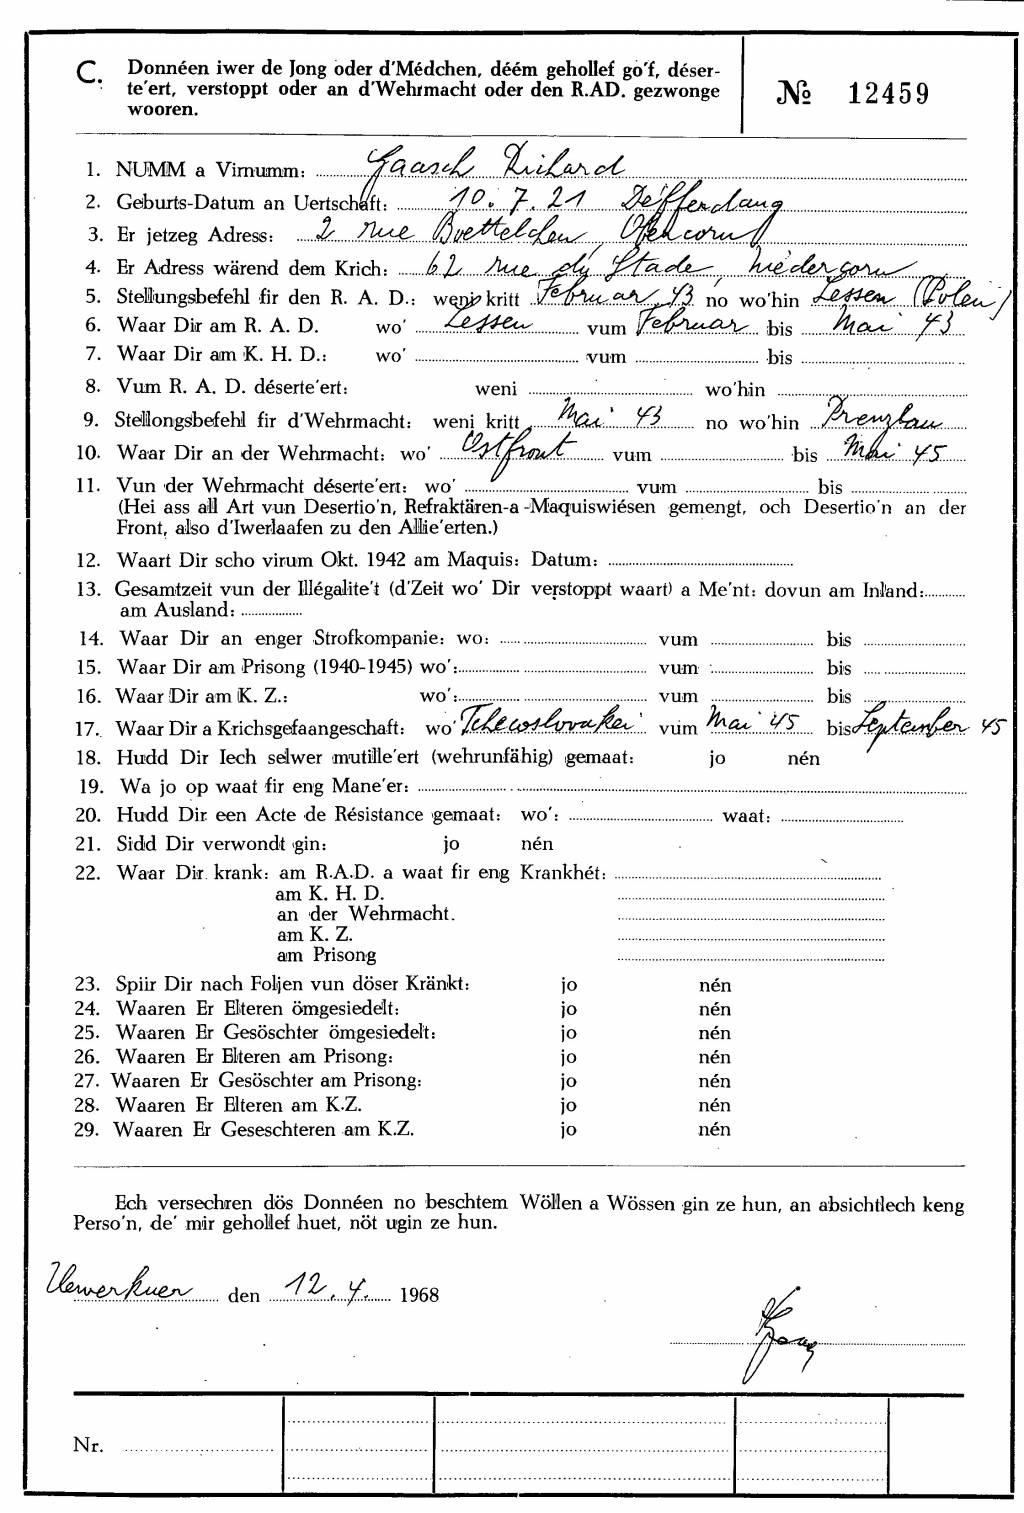 C. Donnéen iwer de Jong oder d'Médchen, déém gehollef go'f, déser-
te'ert, verstoppt oder an d'Wehrmacht oder den R.AD. gezwonge
wooren.
№ 12459
1. NUMM a Virnumm: Gaasch Richard
2. Geburts-Datum an Uertschaft: 10. 7. 21 Deifferdang
3. Er jetzeg Adress: 2 rue Boettelchen, Obercorn
4. Er Adress wärend dem Krich: 62 rue du Stade, Niedercorn
5. Stellungsbefehl fir den R. A. D.: weni kritt Februar 43 no wo'hin Lessen (Polen)
6. Waar Dir am R. A. D. wo' Lessen vum Februar bis Mai 43
7. Waar Dir am K. H. D.: wo' vum bis
8. Vum R. A. D. déserte'ert: weni wo'hin
9. Stellongsbefehl fir d'Wehrmacht: weni kritt Mai 43 no wo'hin Prenzlau
10. Waar Dir an der Wehrmacht: wo' Ostfront vum bis Mai 45
11. Vun der Wehrmacht déserte'ert: wo' vum bis
(Hei ass all Art vun Desertio'n, Refraktären-a-Maquiswiésen gemengt, och Desertio'n an der
Front, also d'Iwerlaafen zu den Allie'erten.)
12. Waart Dir scho virum Okt. 1942 am Maquis: Datum:
13. Gesamtzeit vun der Illégalite't (d'Zeit wo' Dir verstoppt waart) a Me'nt: dovun am Inland:
am Ausland:
14. Waar Dir an enger Strofkompanie: wo: vum bis
15. Waar Dir am Prisong (1940-1945) wo': vum bis
16. Waar Dir am K. Z.: wo': vum bis
17. Waar Dir a Krichsgefaangeschaft: wo' Tchecoslovakei vum Mai 45 bis September 45
18. Hudd Dir Iech selwer mutille'ert (wehrunfähig) gemaat: jo nén
19. Wa jo op waat fir eng Mane'er:
20. Hudd Dir een Acte de Résistance gemaat: wo': waat:
21. Sidd Dir verwondt gin: jo nén
22. Waar Dir krank: am R.A.D. a waat fir eng Krankhét:
am K. H. D.
an der Wehrmacht.
am K. Z.
am Prisong
23. Spiir Dir nach Foljen vun döser Kränkt: jo nén
24. Waaren Er Elteren ömgesiedelt: jo nén
25. Waaren Er Gesöschter ömgesiedelt: jo nén
26. Waaren Er Elteren am Prisong: jo nén
27. Waaren Er Gesöschter am Prisong: jo nén
28. Waaren Er Elteren am K.Z. jo nén
29. Waaren Er Geseschteren am K.Z. jo nén
Ech versechren dös Donnéen no beschtem Wöllen a Wössen gin ze hun, an absichtlech keng
Perso'n, de' mir gehollef huet, nöt ugin ze hun.
Uewerkuer den 12. 4. 1968
Nr.